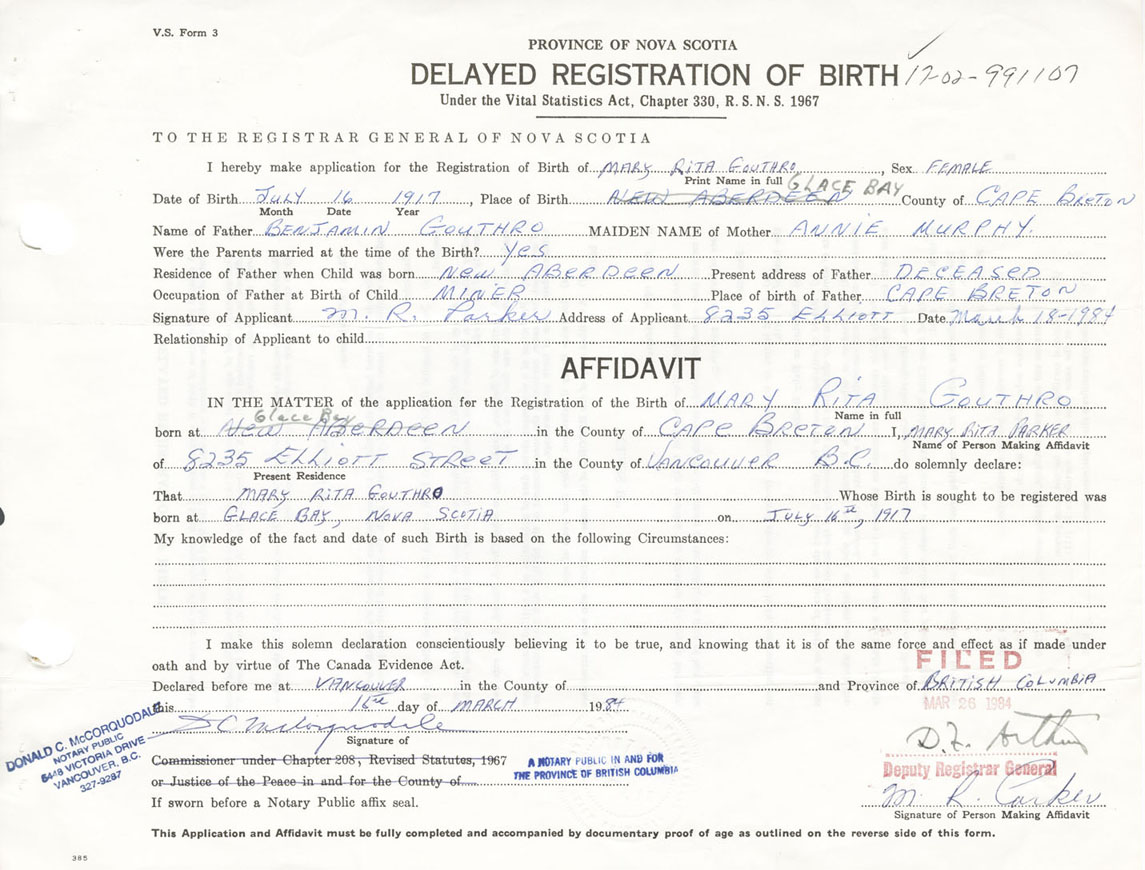 V.S. Form 3
PROVINCE OF NOVA SCOTIA
DELAYED REGISTRATION OF BIRTH 17-02-991107
Under the Vital Statistics Act, Chapter 330, R.S.N.S. 1967
TO THE REGISTRAR GENERAL OF NOVA SCOTIA
I hereby make application for the Registration of Birth of MARY RITA GOUTHRO, Sex FEMALE
Print Name in full GLACE BAY
Date of Birth JULY 16 1917, Place of Birth NEW ABERDEEN County of CAPE BRETON
Month Date Year
Name of Father BENJAMIN GOUTHRO MAIDEN NAME of Mother ANNIE MURPHY.
Were the Parents married at the time of the Birth? Yes
Residence of Father when Child was born NEW ABERDEEN Present address of Father DECEASED
Occupation of Father at Birth of Child MINER Place of birth of Father CAPE BRETON
Signature of Applicant M. R. Parker Address of Applicant 8235 ELLIOTT Date March 18-1984
Relationship of Applicant to child
AFFIDAVIT
IN THE MATTER of the application for the Registration of the Birth of MARY RITA GOUTHRO
Glace Bay Name in full
born at NEW ABERDEEN in the County of CAPE BRETON I, MARY RITA PARKER
Name of Person Making Affidavit
of 8235 ELLIOTT STREET in the County of VANCOUVER B.C. do solemnly declare:
Present Residence
That MARY RITA GOUTHRO Whose Birth is sought to be registered was
born at GLACE BAY, NOVA SCOTIA on JULY 16th, 1917
My knowledge of the fact and date of such Birth is based on the following Circumstances:
I make this solemn declaration conscientiously believing it to be true, and knowing that it is of the same force and effect as if made under
oath and by virtue of The Canada Evidence Act.
FILED
Declared before me at VANCOUVER in the County of and Province of BRITISH COLUMBIA
this 16th day of MARCH 1984
MAR 26 1984
DONALD C. McCORQUODALE
NOTARY PUBLIC
5448 VICTORIA DRIVE
VANCOUVER, B.C.
327-9287
D C McCorquodale
Signature of
Commissioner under Chapter 208, Revised Statutes, 1967
or Justice of the Peace in and for the County of
A NOTARY PUBLIC IN AND FOR
THE PROVINCE OF BRITISH COLUMBIA
Deputy Registrar General
M. R. Parker
If sworn before a Notary Public affix seal.
Signature of Person Making Affidavit
This Application and Affidavit must be fully completed and accompanied by documentary proof of age as outlined on the reverse side of this form.
385